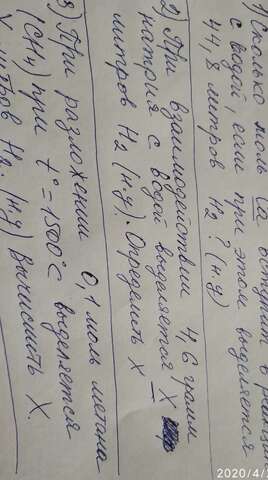 1) Сколько моль Ca вступит в реакцию
с водой, если при этом выделяется
44,8 литров H₂? (н.у)
2) При взаимодействии 4,6 грамм
натрия с водой выделяется X
литров H₂ (н.у). Определить X
3) При разложении 0,1 моль метана
(CH₄) при t°=1500°C выделяется
X литров H₂. (н.у) Вычислить X.
2020/4/2